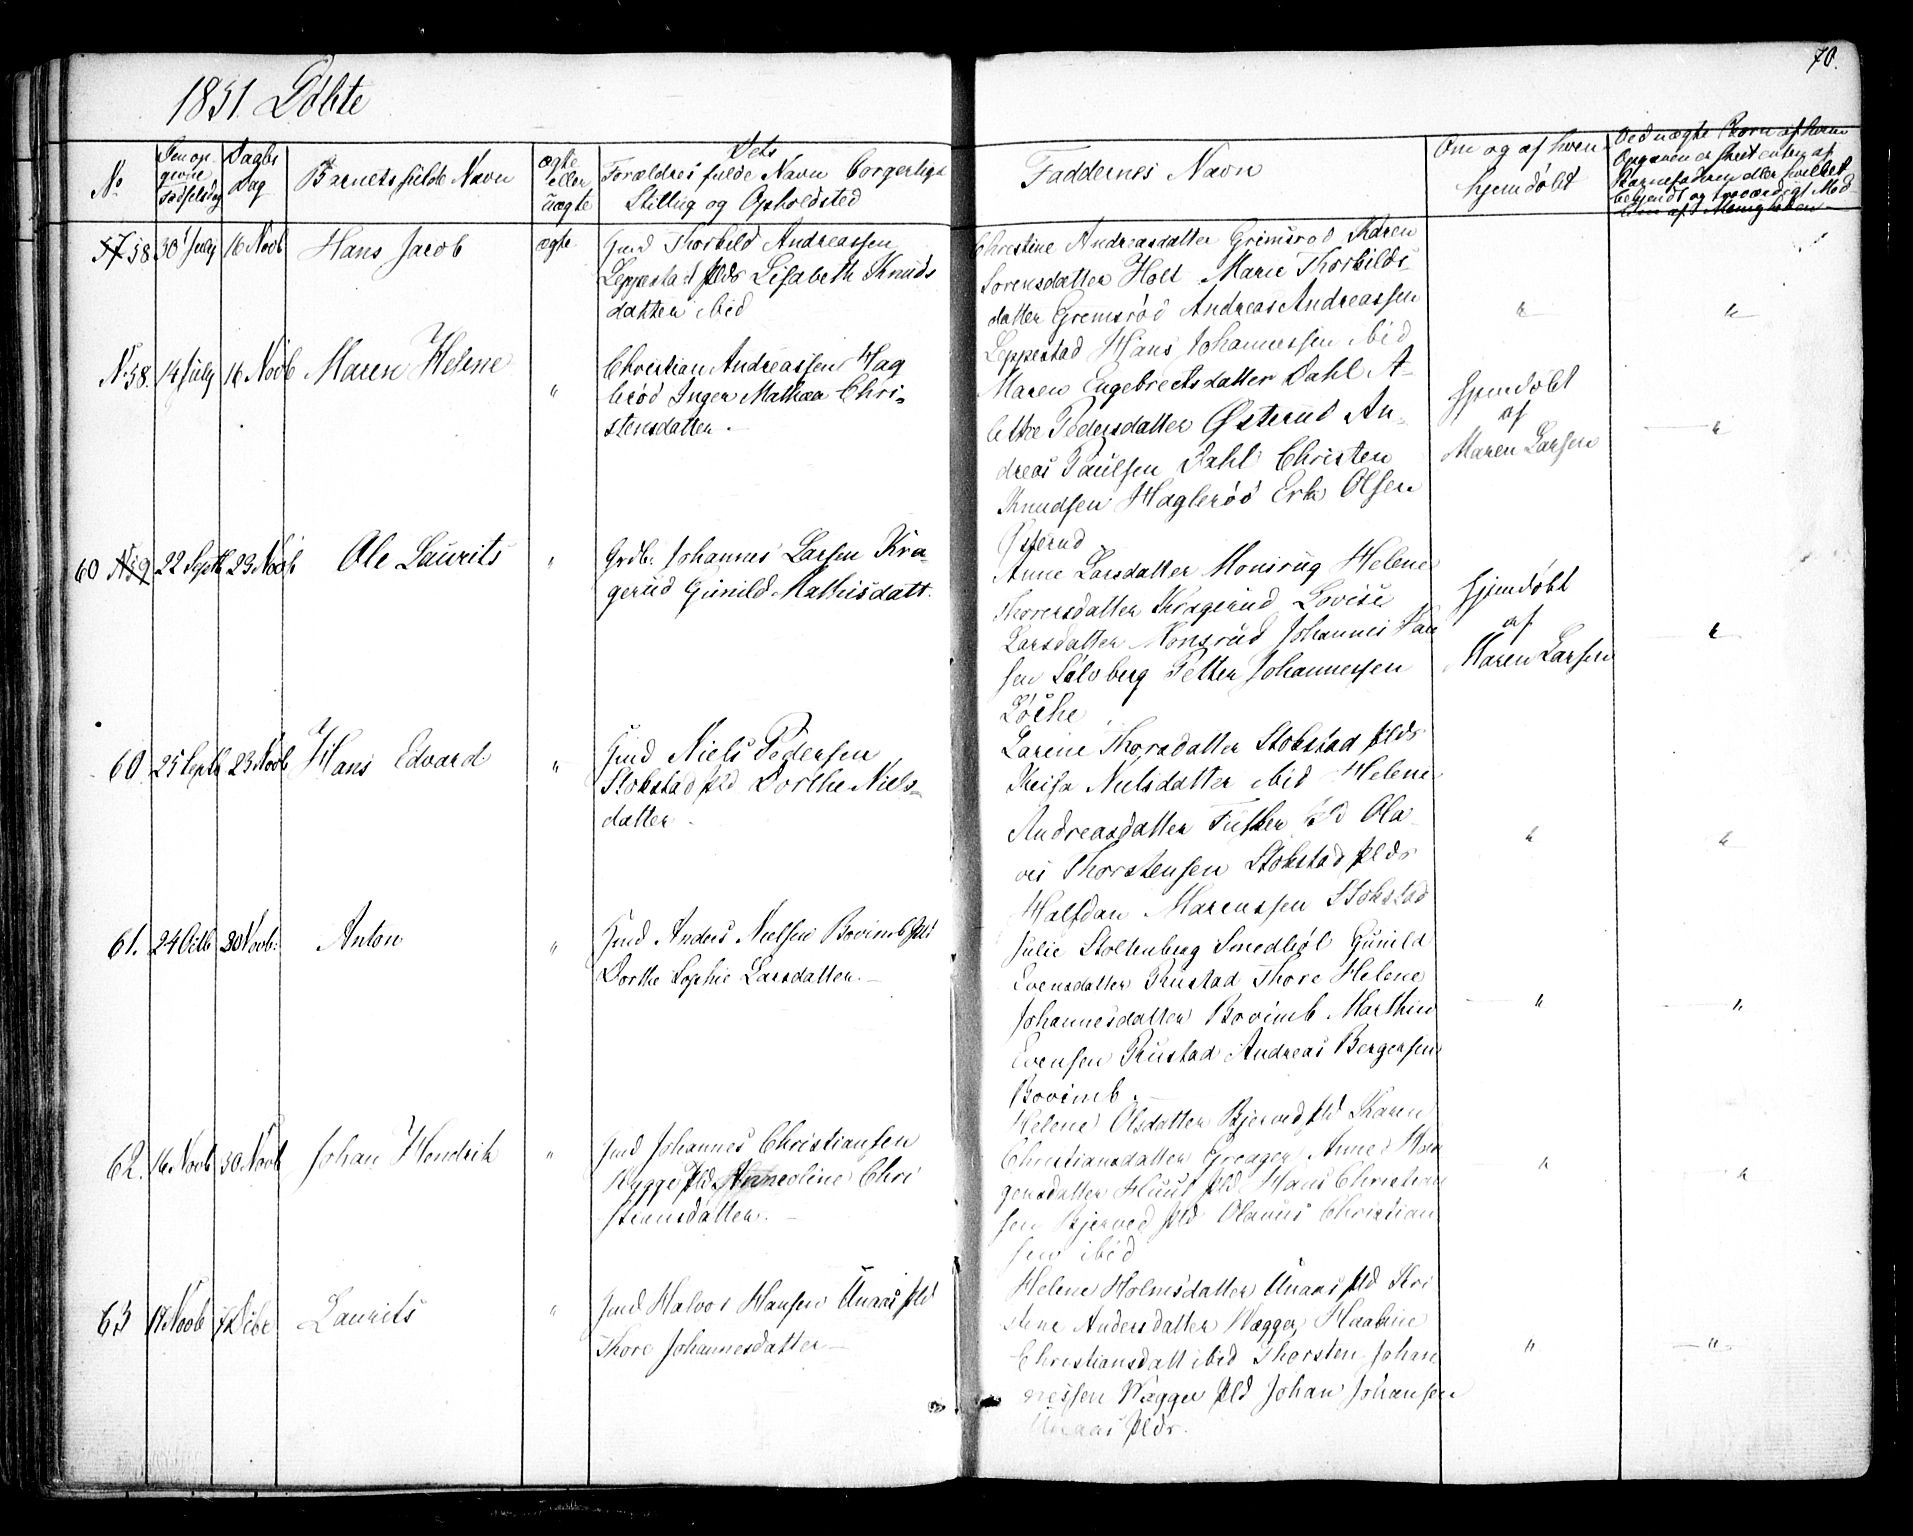 70.
1851 Döbte
No
Den op-
givne
Fødselsdag
Daabs
Dag
Barnets fulde Navn
ægte
eller
uægte
Dets
Forældres fulde Navn borgerlige
Stilling og Opholdsted
Faddernes Navn
Om og af hvem
hjemdøbt
Ved uægte Børn af hvem
Opgaven er skeet enten af
Barnefaderen eller hvilket
bekjendt og troværdigt Med
lem af Menigheden
57 58 30 July 16 Novb Hans Jacob ægte
Gmd Thorbild Andreassen
Leppestad plds Lisabeth Knuds
datter ibid
Christine Andreasdatter Grimsrød Karen
Sorensdatter Holt Marie Thorbilds-
datter Gremsrød Andreas Andreassen
Leppestad Hans Johannessen ibid
N. 58. 14 July 16 Novb Maren Helene "
Christian Andreassen Hag
lerød Inger Mathea Chri-
stensdatter.
Maren Engebretsdatter Dahl A-
lethe Pedersdatter Østerud An-
dreas Paulsen Dahl Christen
Knudsen Haglerød Erk Olsen
Østerud
Hjemdøbt
af
Maren Larsen
60 N59 22 Septb 23 Novb Ole Laurits "
Grdb. Johannes Larsen Kra-
gerud Gunild Mathisdatt.
Anne Larsdatter Monsrug Helene
Thorersdatter Kragerud Lovise
Larsdatter Monsrud Johannes
sen Solvberg Petter Johannessen
Löche
Hjemdøbt
af
Maren Larsen
60 25 Septb 23 Novb Hans Edvard "
Gmd Niels Pedersen
Stokstad pld Dorthe Niels-
datter
Larine Thorsdatter Stokstad plds
Nielsdatter ibid Helene
Andreasdatter pld Ola
vis Thorstensen Stokstad plds
Halfdan Marenssen Stokstad
61. 24 Octb 30 Novb. Anton "
Gmd Anders Nielsen Bovimb pld
Dorthe Sophie Larsdatter.
Julie Stoltenberg Smedhol Gunild
Evensdatter Rustad Thore Helene
Johannesdatter Bovimb Marthin
Evensen Rustad Andreas Bergersen
Bovimb.
62. 16 Novb 30 Novb Johan Hendrik "
Gmd Johannes Christiansen
Hygge pld Anneoline Chri
stiansdatter.
Helene Olsdatter Bjerved pld Karen
Christiansdatter Greager Anne
gensdatter Huul pld Hans Christian
sen Bjerved pld Olaves Christian
sen ibid
63 17 Novb 7 Decbr Laurits "
Gmd Halvor Hansen Unaas pld
Thore Johannesdatter
Helene Holmsdatter Unaas pld Kri
stine Andersdatter Wægger Haakine
Christiansdatt ibid Thorsten Johan
nessen Wægger pld Johan Johansen
Unaas plds.